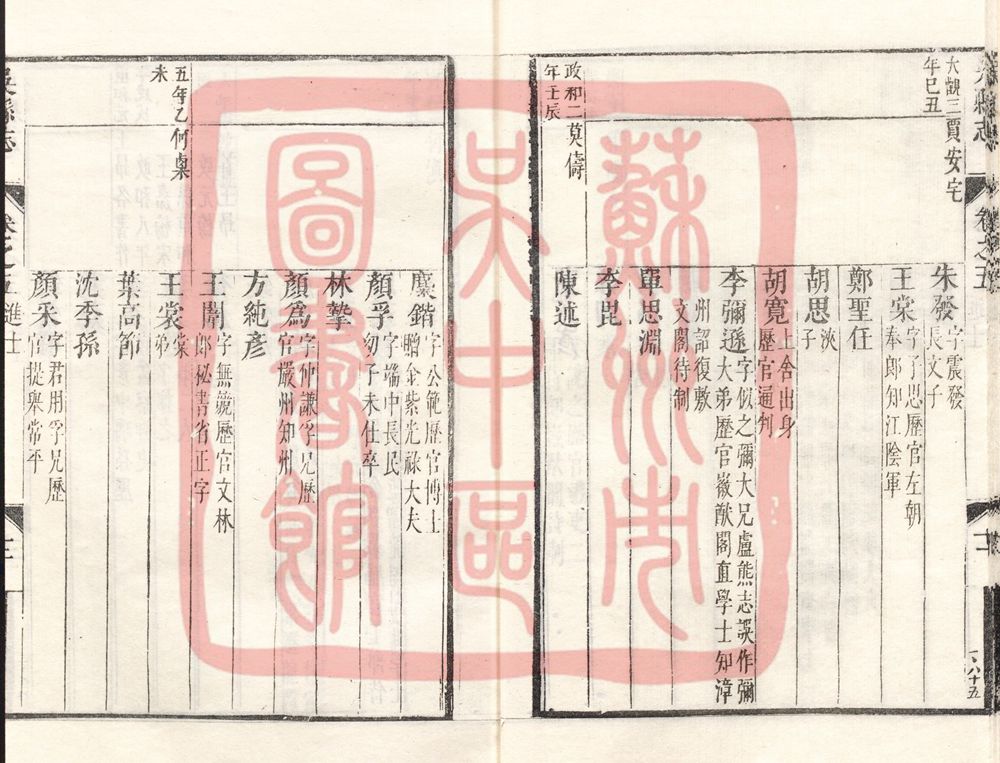 吳縣志
卷之五
大觀三年己丑
賈安宅
朱發 字震發長文子
王棠 字子思歷官左朝奉郎知江陰軍
鄭聖任
胡思 浹子
胡寬 上舍出身歷官通判
李彌遜 字似之彌大兄盧熊志誤作彌大弟歷官徽猷閣直學士知漳州詔復敷文閣待制
單思淵
李毘
陳述
政和二年壬辰
莫儔
麋鍇 字公範歷官博士贈金紫光祿大夫
顏孚 字端中長民幼子未仕卒
林摯
顏爲 字仲謙孚兄歷官嚴州知州
方純彥
五年乙未
何㮚
王閌 字無競歷官文林郎秘書省正字
王裳 棠弟
葉高節
沈季孫
顏采 字君用孚兄歷官提舉常平
吳縣志
卷之五
進士
蘇州市
吳中區
圖書館